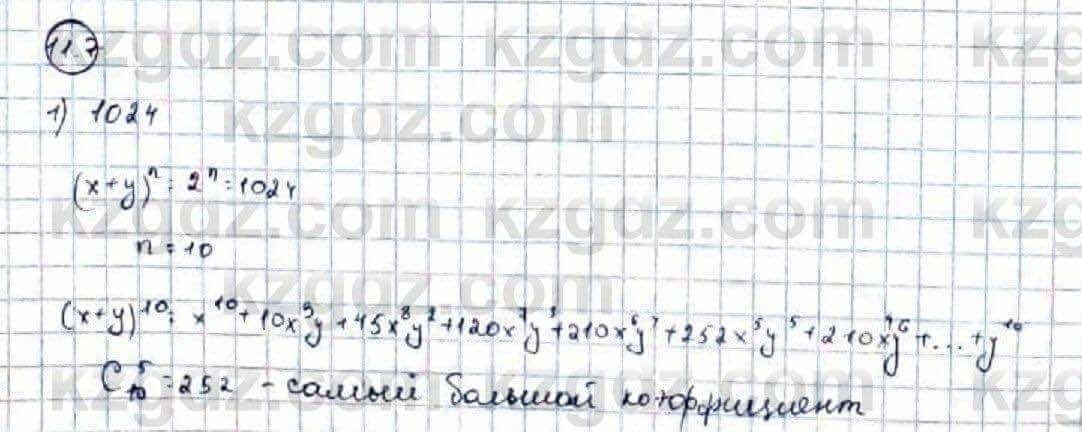 11.7
kzgdz.com kzgdz.com kzg
1) 1024
kzgdz.com
(x+y)ⁿ = 2ⁿ = 1024
kzgdz.com kzgdz.com kzg
n = 10
(x+y)¹⁰ = x¹⁰ + 10x⁹y + 45x⁸y² + 120x⁷y³ + 210x⁶y⁴ + 252x⁵y⁵ + 210x⁴y⁶ + ... + y¹⁰
C₁₀⁵ = 252 - самый большой коэффициент